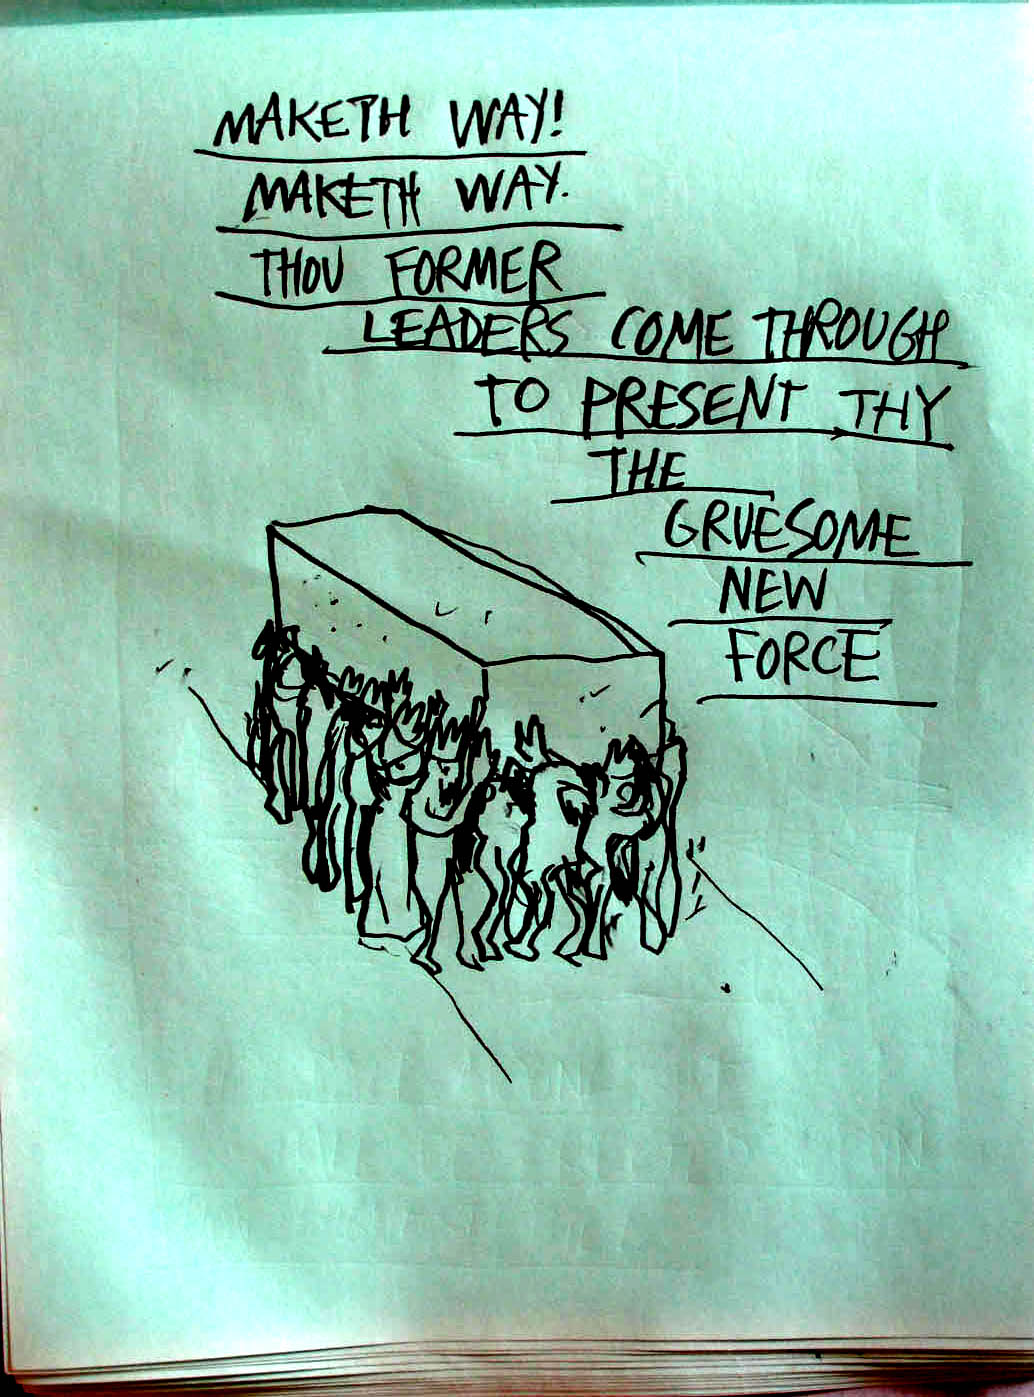 MAKETH WAY!
MAKETH WAY.
THOU FORMER
LEADERS COME THROUGH
TO PRESENT THY
THE
GRUESOME
NEW
FORCE